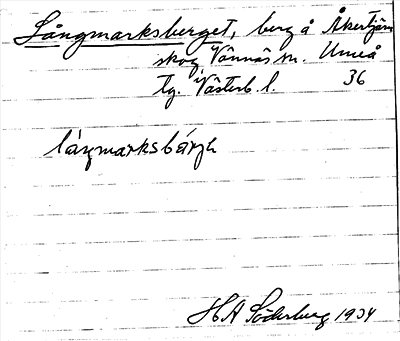 Långmarksberget, berg å Åkertjärn
skog Vännäs sn. Umeå
tg. Västerb. l. 36
låŋmarksbárjh
H A Söderberg 1934